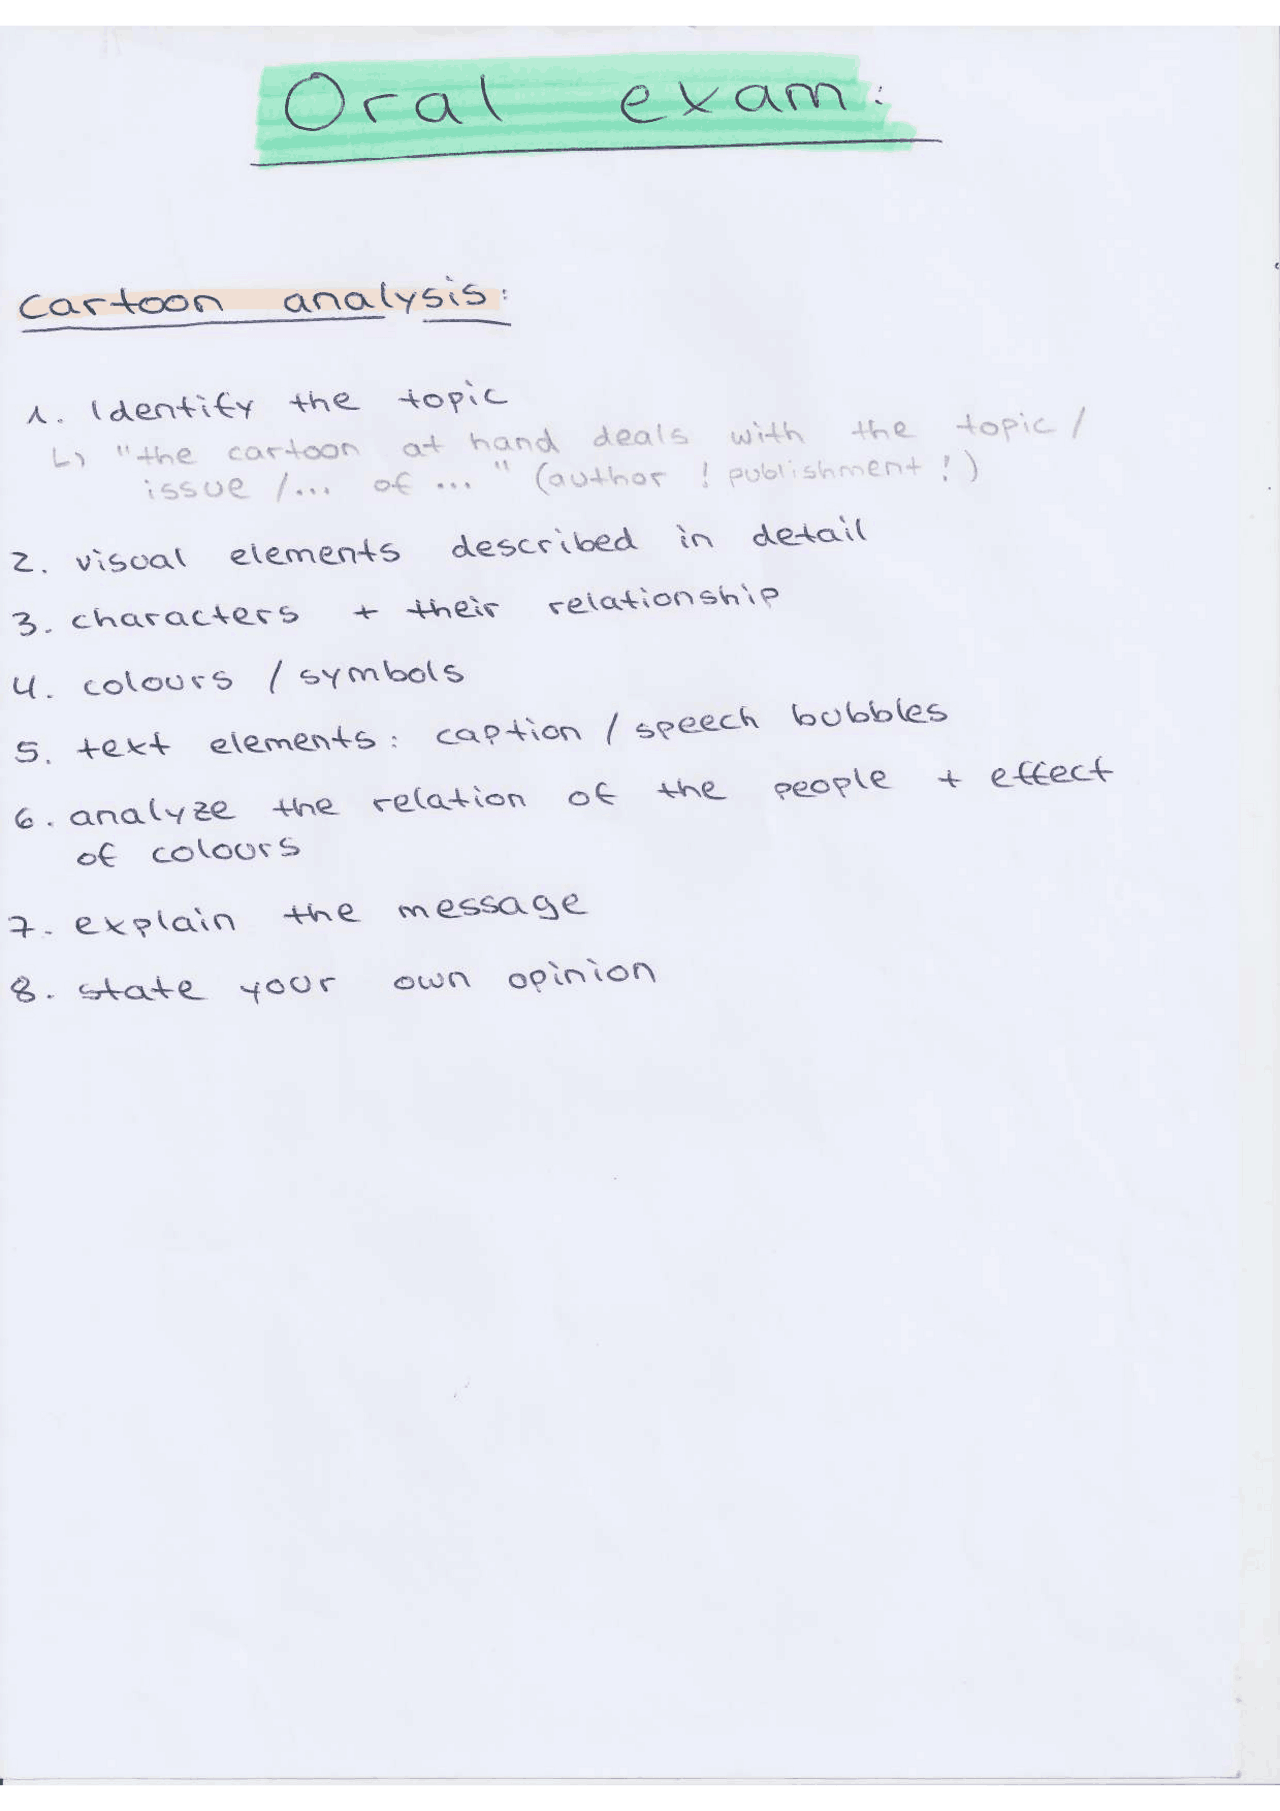 Oral exam:
cartoon analysis:
1. Identify the topic
↳ "the cartoon at hand deals with the topic /
issue /... of ..." (author ! publishment !)
2. visual elements described in detail
3. characters + their relationship
4. colours / symbols
5. text elements: caption / speech bubbles
6. analyze the relation of the people + effect
of colours
7. explain the message
8. state your own opinion